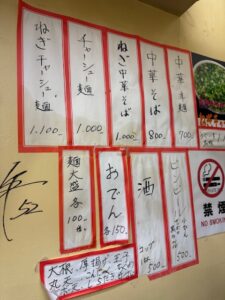 中華そば
700-
中華そば
800-
ねぎ中華そば
1.000-
チャーシュー麺
1.000-
ねぎチャーシュー麺
1.100-
ビンビール
500-
酒
コップ
500-
おでん
各150-
麺大盛各
100-
大根、厚揚げ、玉子
丸天
こんにゃく
しらたき
禁煙
NO SMOKING